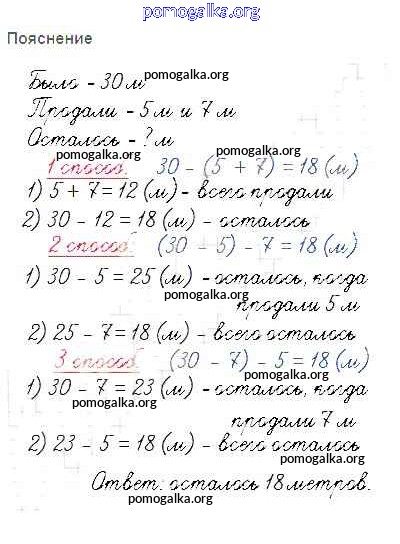 pomogalka.org
Пояснение
Было - 30 м pomogalka.org
Продали - 5 м и 7 м
pomogalka.org
Осталось - ? м
pomogalka.org pomogalka.org
1 способ: 30 - (5 + 7) = 18 (м)
1) 5 + 7 = 12 (м) - всего продали
2) 30 - 12 = 18 (м) - осталось
pomogalka.org
2 способ: (30 - 5) - 7 = 18 (м)
1) 30 - 5 = 25 (м) - осталось, когда
pomogalka.org
продали 5 м
2) 25 - 7 = 18 (м) - всего осталось
pomogalka.org
3 способ: (30 - 7) - 5 = 18 (м)
1) 30 - 7 = 23 (м) - осталось, когда
pomogalka.org
продали 7 м
2) 23 - 5 = 18 (м) - всего осталось
pomogalka.org
Ответ: осталось 18 метров.
pomogalka.org